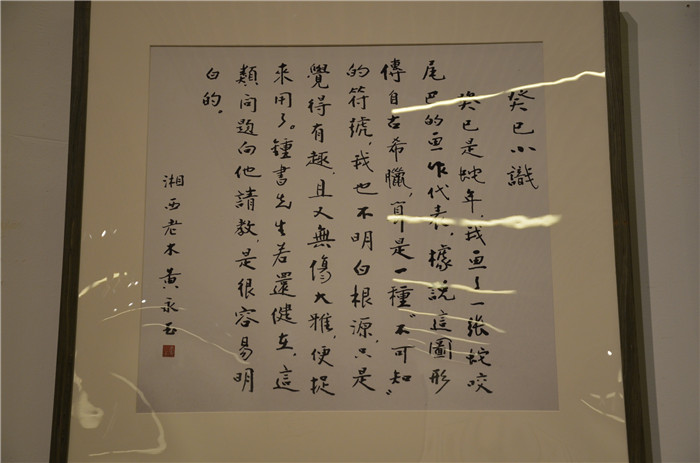 癸巳小識
癸巳是蛇年，我画了一张蛇咬
尾巴的画作代表，據説這圖形
傳自古希臘，算是一種“不可知”
的符號，我也不明白根源，只是
覺得有趣，且又無傷大雅，便捉
來用了。鍾書先生若還健在，這
類问題向他請教，是很容易明
白的。
湘西老木黄永玉